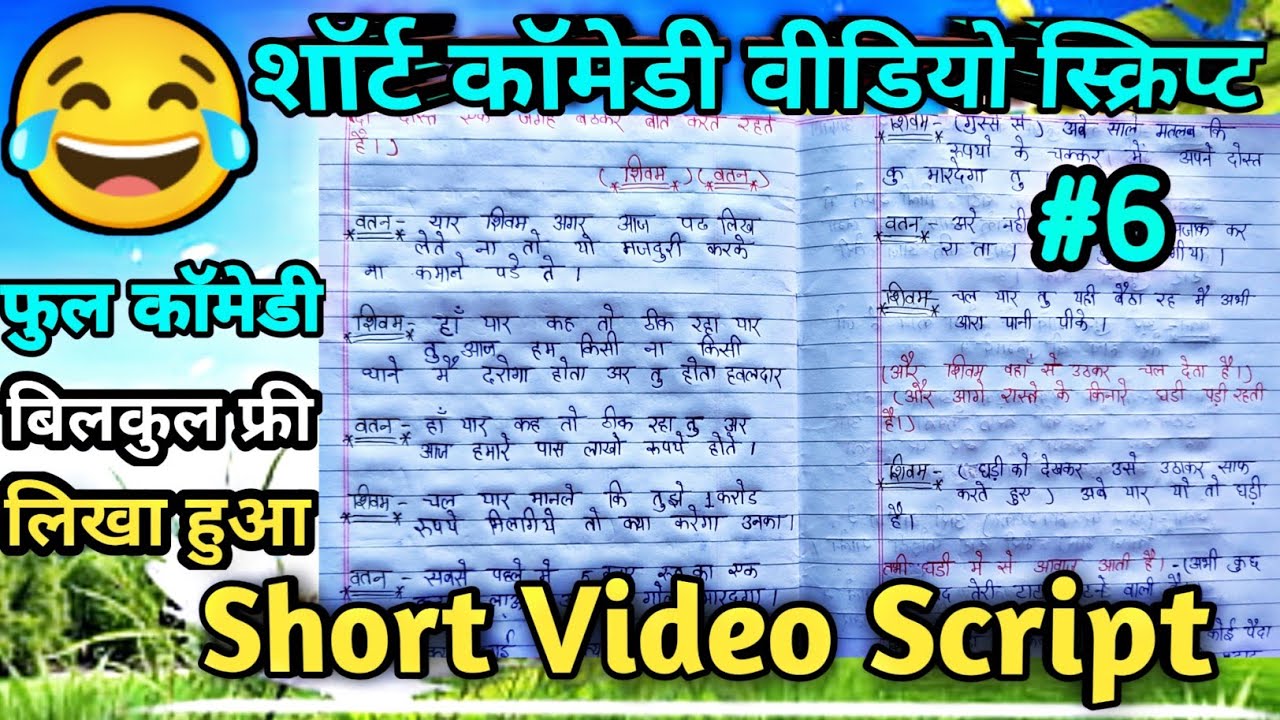 शॉर्ट कॉमेडी वीडियो स्क्रिप्ट
#6
फुल कॉमेडी
बिलकुल फ्री
लिखा हुआ
Short Video Script
दोस्त एक जगह बैठकर बाते करते रहते
है।)
(शिवम)(वतन)
वतन - यार शिवम अगर आज पढ लिख
लेते ना तो यो मजदुरी करके
ना कमाने पडे ते।
शिवम - हाँ यार कह तो ठीक रहा यार
तु आज हम किसी ना किसी
थाने में दरोगा होता अर तु होता हवलदार
वतन - हाँ यार कह तो ठीक रहा तु अर
आज हमारे पास लाखो रूपये होते।
शिवम - चल यार मानले कि तुझे 1 करोड
रूपये मिलगिये तो क्या करेगा उनका।
वतन - सबसे पहले में
शिवम - (गुस्से से) अबे साले मतलब कि
रूपयो के चक्कर में अपने दोस्त
कु मारदेगा तु
वतन - अरे नही मजाक कर
रा ता।
शिवम - चल यार तु यही बैठा रह मै अभी
आरा पानी पीके।
(और शिवम वहाँ से उठकर चल देता है।)
(और आगे रास्ते के किनारे घडी पडी रहती
है।)
शिवम - (घडी को देखकर उसे उठाकर साफ
करते हुए) अबे यार यो तो घडी
है।
तभी घडी मे से आवाज आती है। - (अभी कुछ
तेरी वाली है
कोई पैदा